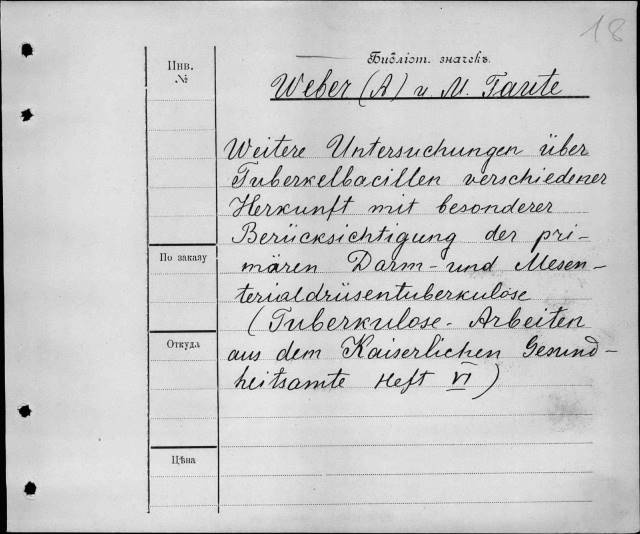 18
Библіот. значекъ.
Инв.
№
Weber (A) u. M. Taute
Weitere Untersuchungen über
Tuberkelbacillen verschiedener
Herkunft mit besonderer
Berücksichtigung der pri-
По заказу
mären Darm- und Mesen-
terialdrüsentuberkulose
(Tuberkulose-Arbeiten
Откуда
aus dem Kaiserlichen Gesund-
heitsamte Heft VI)
Цѣна